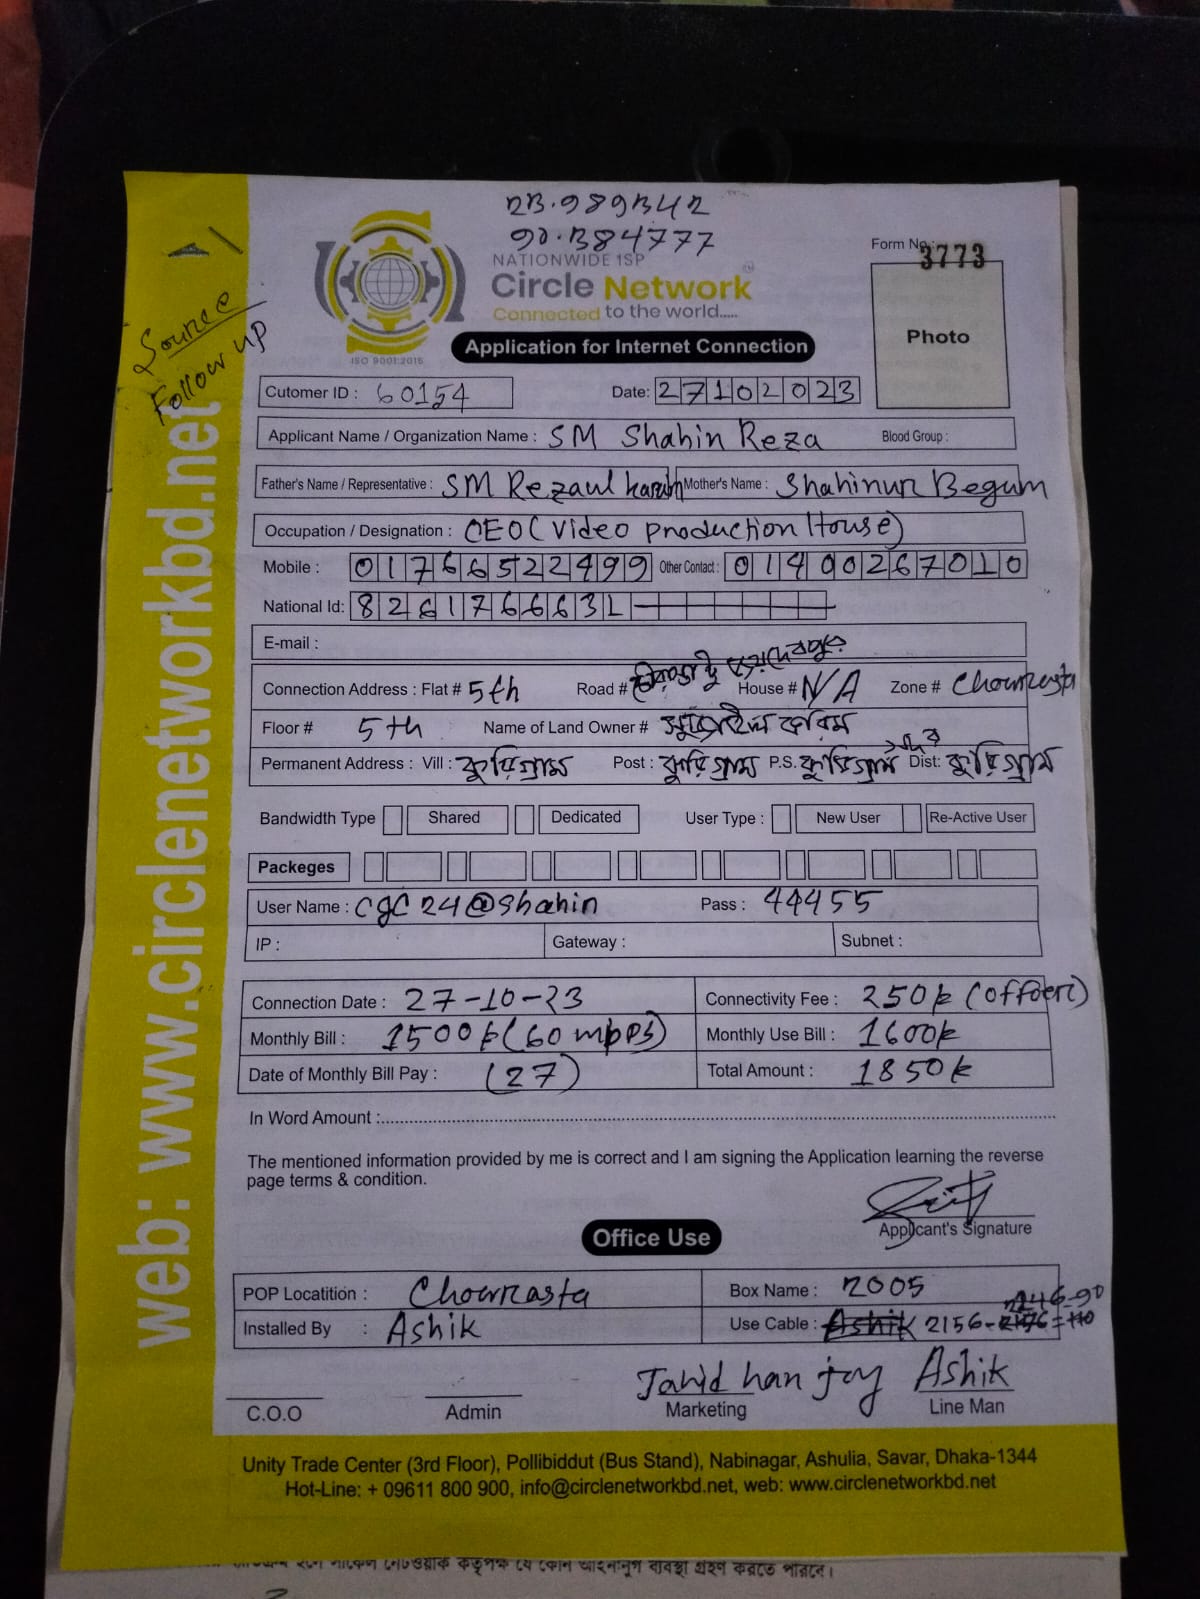 23.989342
90.384777
NATIONWIDE ISP
Circle Network
Connected to the world.....
ISO 9001:2015
Form No.: 3773
Photo
Source
Follow up
web: www.circlenetworkbd.net
Application for Internet Connection
Cutomer ID : 60154 Date: 27102023
Applicant Name / Organization Name : SM Shahin Reza Blood Group :
Father's Name / Representative : SM Rezaul karim Mother's Name : Shahinur Begum
Occupation / Designation : CEO (Video production House)
Mobile : 01766522499 Other Contact : 01400267010
National Id: 8261766631
E-mail :
Connection Address : Flat # 5th Road # House # N/A Zone # Chowrasta
Floor # 5th Name of Land Owner # করিম
Permanent Address : Vill : কুড়িগ্রাম Post : কুড়িগ্রাম P.S. কুড়িগ্রাম সদর Dist: কুড়িগ্রাম
Bandwidth Type Shared Dedicated User Type : New User Re-Active User
Packeges
User Name : cgc24@shahin Pass : 44455
IP : Gateway : Subnet :
Connection Date : 27-10-23 Connectivity Fee : 250৳ (offer)
Monthly Bill : 1500৳ (60 mbps) Monthly Use Bill : 1600৳
Date of Monthly Bill Pay : (27) Total Amount : 1850৳
In Word Amount :
The mentioned information provided by me is correct and I am signing the Application learning the reverse
page terms & condition.
Applicant's Signature
Office Use
POP Locatition : Chowrasta Box Name : 2005
Installed By : Ashik Use Cable : Ashik 2156-2246-90
Jahid han joy Ashik
C.O.O Admin Marketing Line Man
Unity Trade Center (3rd Floor), Pollibiddut (Bus Stand), Nabinagar, Ashulia, Savar, Dhaka-1344
Hot-Line: + 09611 800 900, info@circlenetworkbd.net, web: www.circlenetworkbd.net
নেটওয়ার্ক কতৃপক্ষ যে কোন আইনানুগ ব্যবস্থা গ্রহণ করতে পারবে।